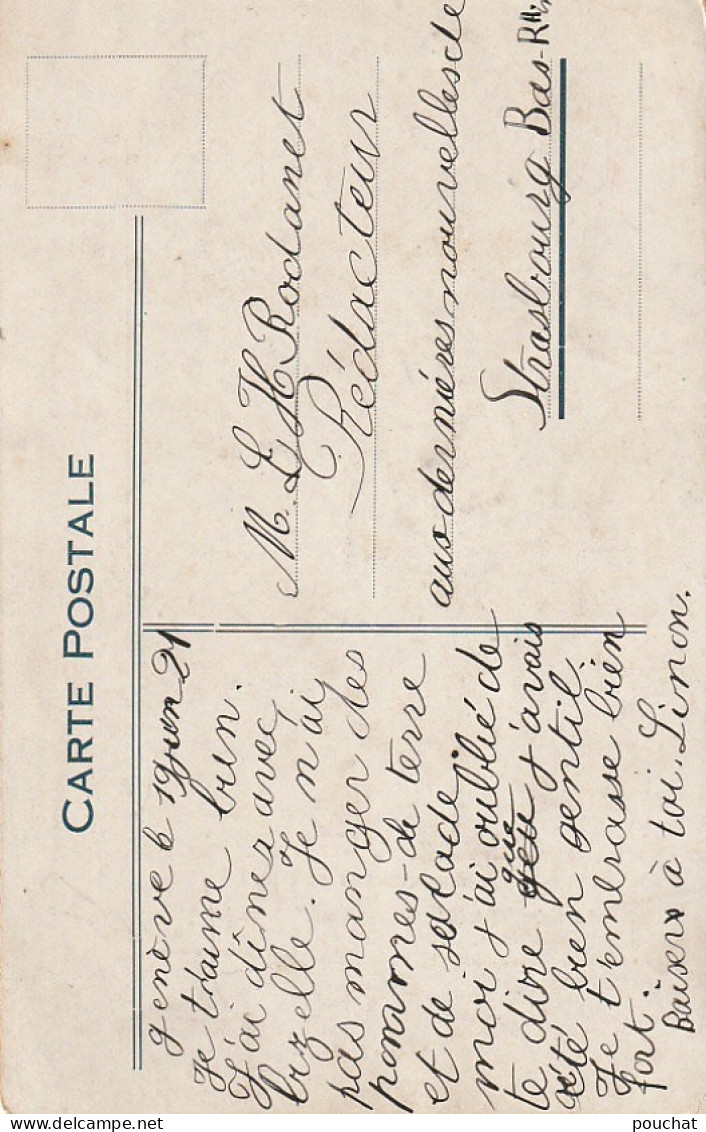 CARTE POSTALE
genève le 19 juin 21
Je t'aime bien.
J'ai dîner avec
lizelle. Je n'ai
pas manger des
pommes-de terre
et de salade
moi j'ai oublié de
te dire que j'avais
été bien gentil.
Je t'embrasse bien
fort.
Baisers à toi. Linon.
M. L H Rodanet
Rédacteur
aux dernières nouvelles de
Strasbourg Bas-Rhin
pouchat